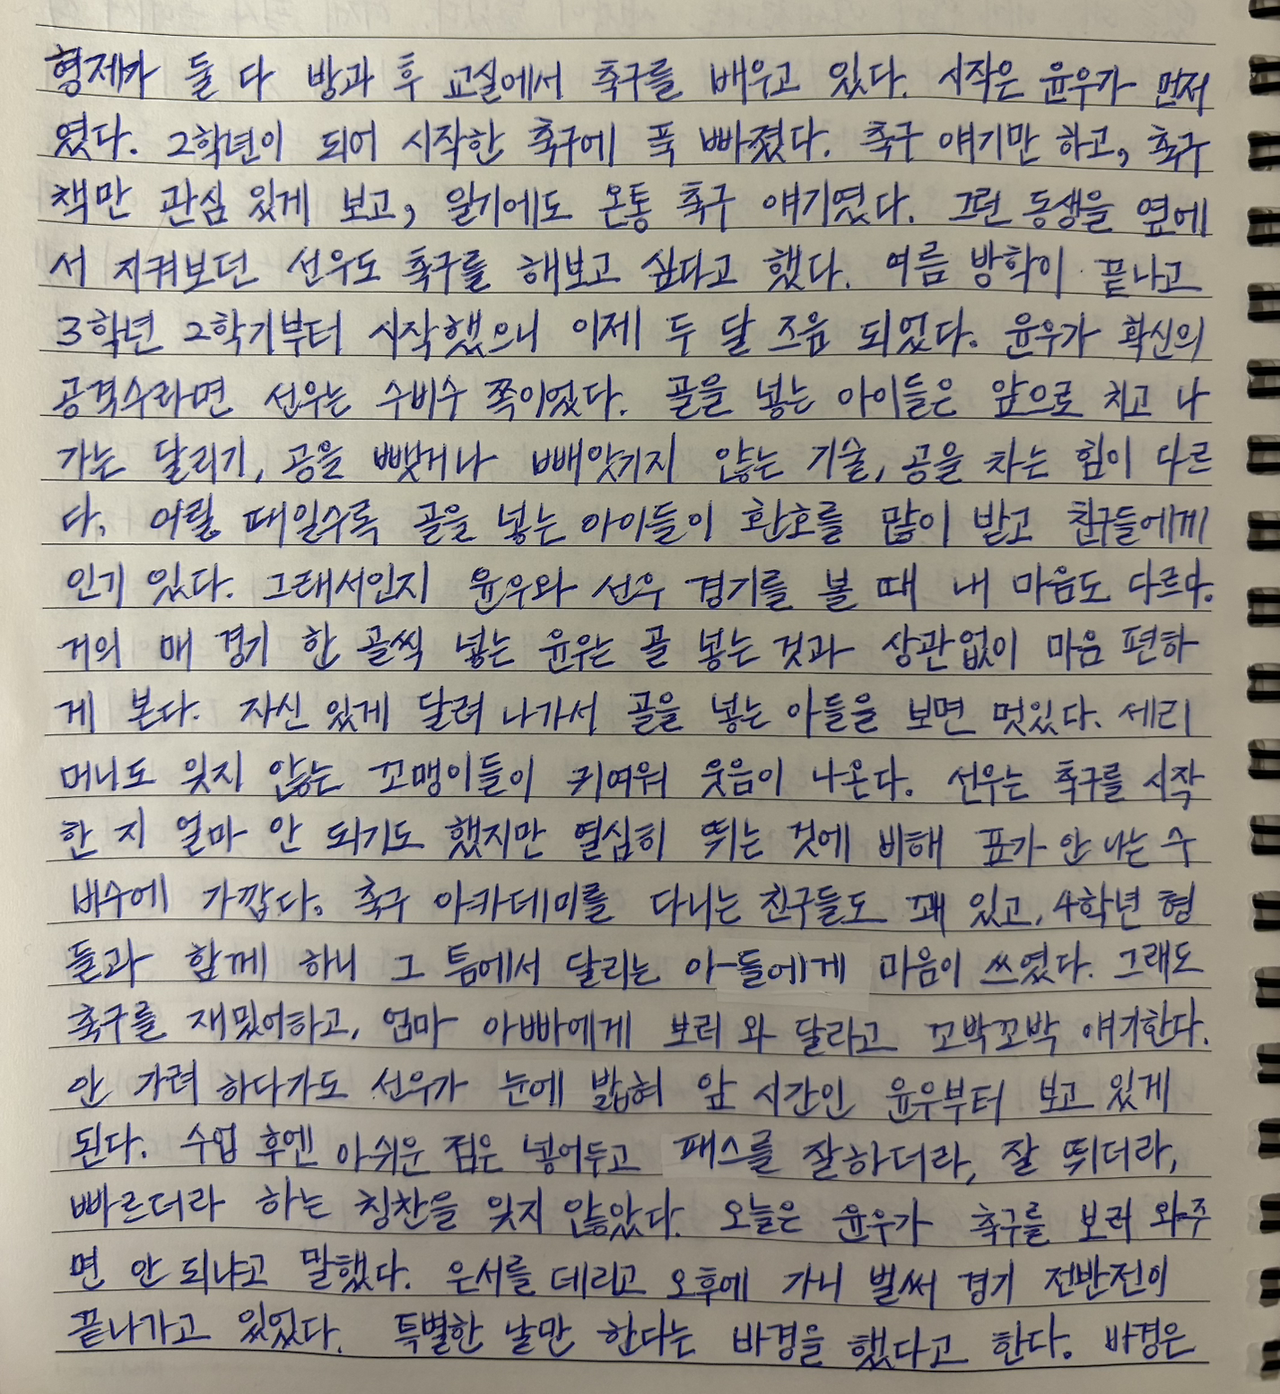 형제가 둘 다 방과 후 교실에서 축구를 배우고 있다. 시작은 윤우가 먼저
였다. 2학년이 되어 시작한 축구에 푹 빠졌다. 축구 얘기만 하고, 축구
책만 관심 있게 보고, 일기에도 온통 축구 얘기였다. 그런 동생을 옆에
서 지켜보던 선우도 축구를 해보고 싶다고 했다. 여름 방학이 끝나고
3학년 2학기부터 시작했으니 이제 두 달 즈음 되었다. 윤우가 확신의
공격수라면 선우는 수비수 쪽이었다. 골을 넣는 아이들은 앞으로 치고 나
가는 달리기, 공을 뺏거나 빼앗기지 않는 기술, 공을 차는 힘이 다르
다. 어릴 때일수록 골을 넣는 아이들이 환호를 많이 받고 친구들에게
인기 있다. 그래서인지 윤우와 선우 경기를 볼 때 내 마음도 다르다.
거의 매 경기 한 골씩 넣는 윤우는 골 넣는 것과 상관없이 마음 편하
게 본다. 자신 있게 달려 나가서 골을 넣는 아들을 보면 멋있다. 세리
머니도 잊지 않는 꼬맹이들이 귀여워 웃음이 나온다. 선우는 축구를 시작
한 지 얼마 안 되기도 했지만 열심히 뛰는 것에 비해 표가 안 나는 수
비수에 가깝다. 축구 아카데미를 다니는 친구들도 꽤 있고, 4학년 형
들과 함께 하니 그 틈에서 달리는 아들에게 마음이 쓰였다. 그래도
축구를 재밌어하고, 엄마 아빠에게 보러 와 달라고 꼬박꼬박 얘기한다.
안 가려 하다가도 선우가 눈에 밟혀 앞 시간인 윤우부터 보고 있게
된다. 수업 후엔 아쉬운 점은 넣어두고 패스를 잘하더라, 잘 뛰더라,
빠르더라 하는 칭찬을 잊지 않았다. 오늘은 윤우가 축구를 보러 와주
면 안 되냐고 말했다. 은서를 데리고 오후에 가니 벌써 경기 전반전이
끝나가고 있었다. 특별한 날만 한다는 반경을 했다고 한다. 반경은